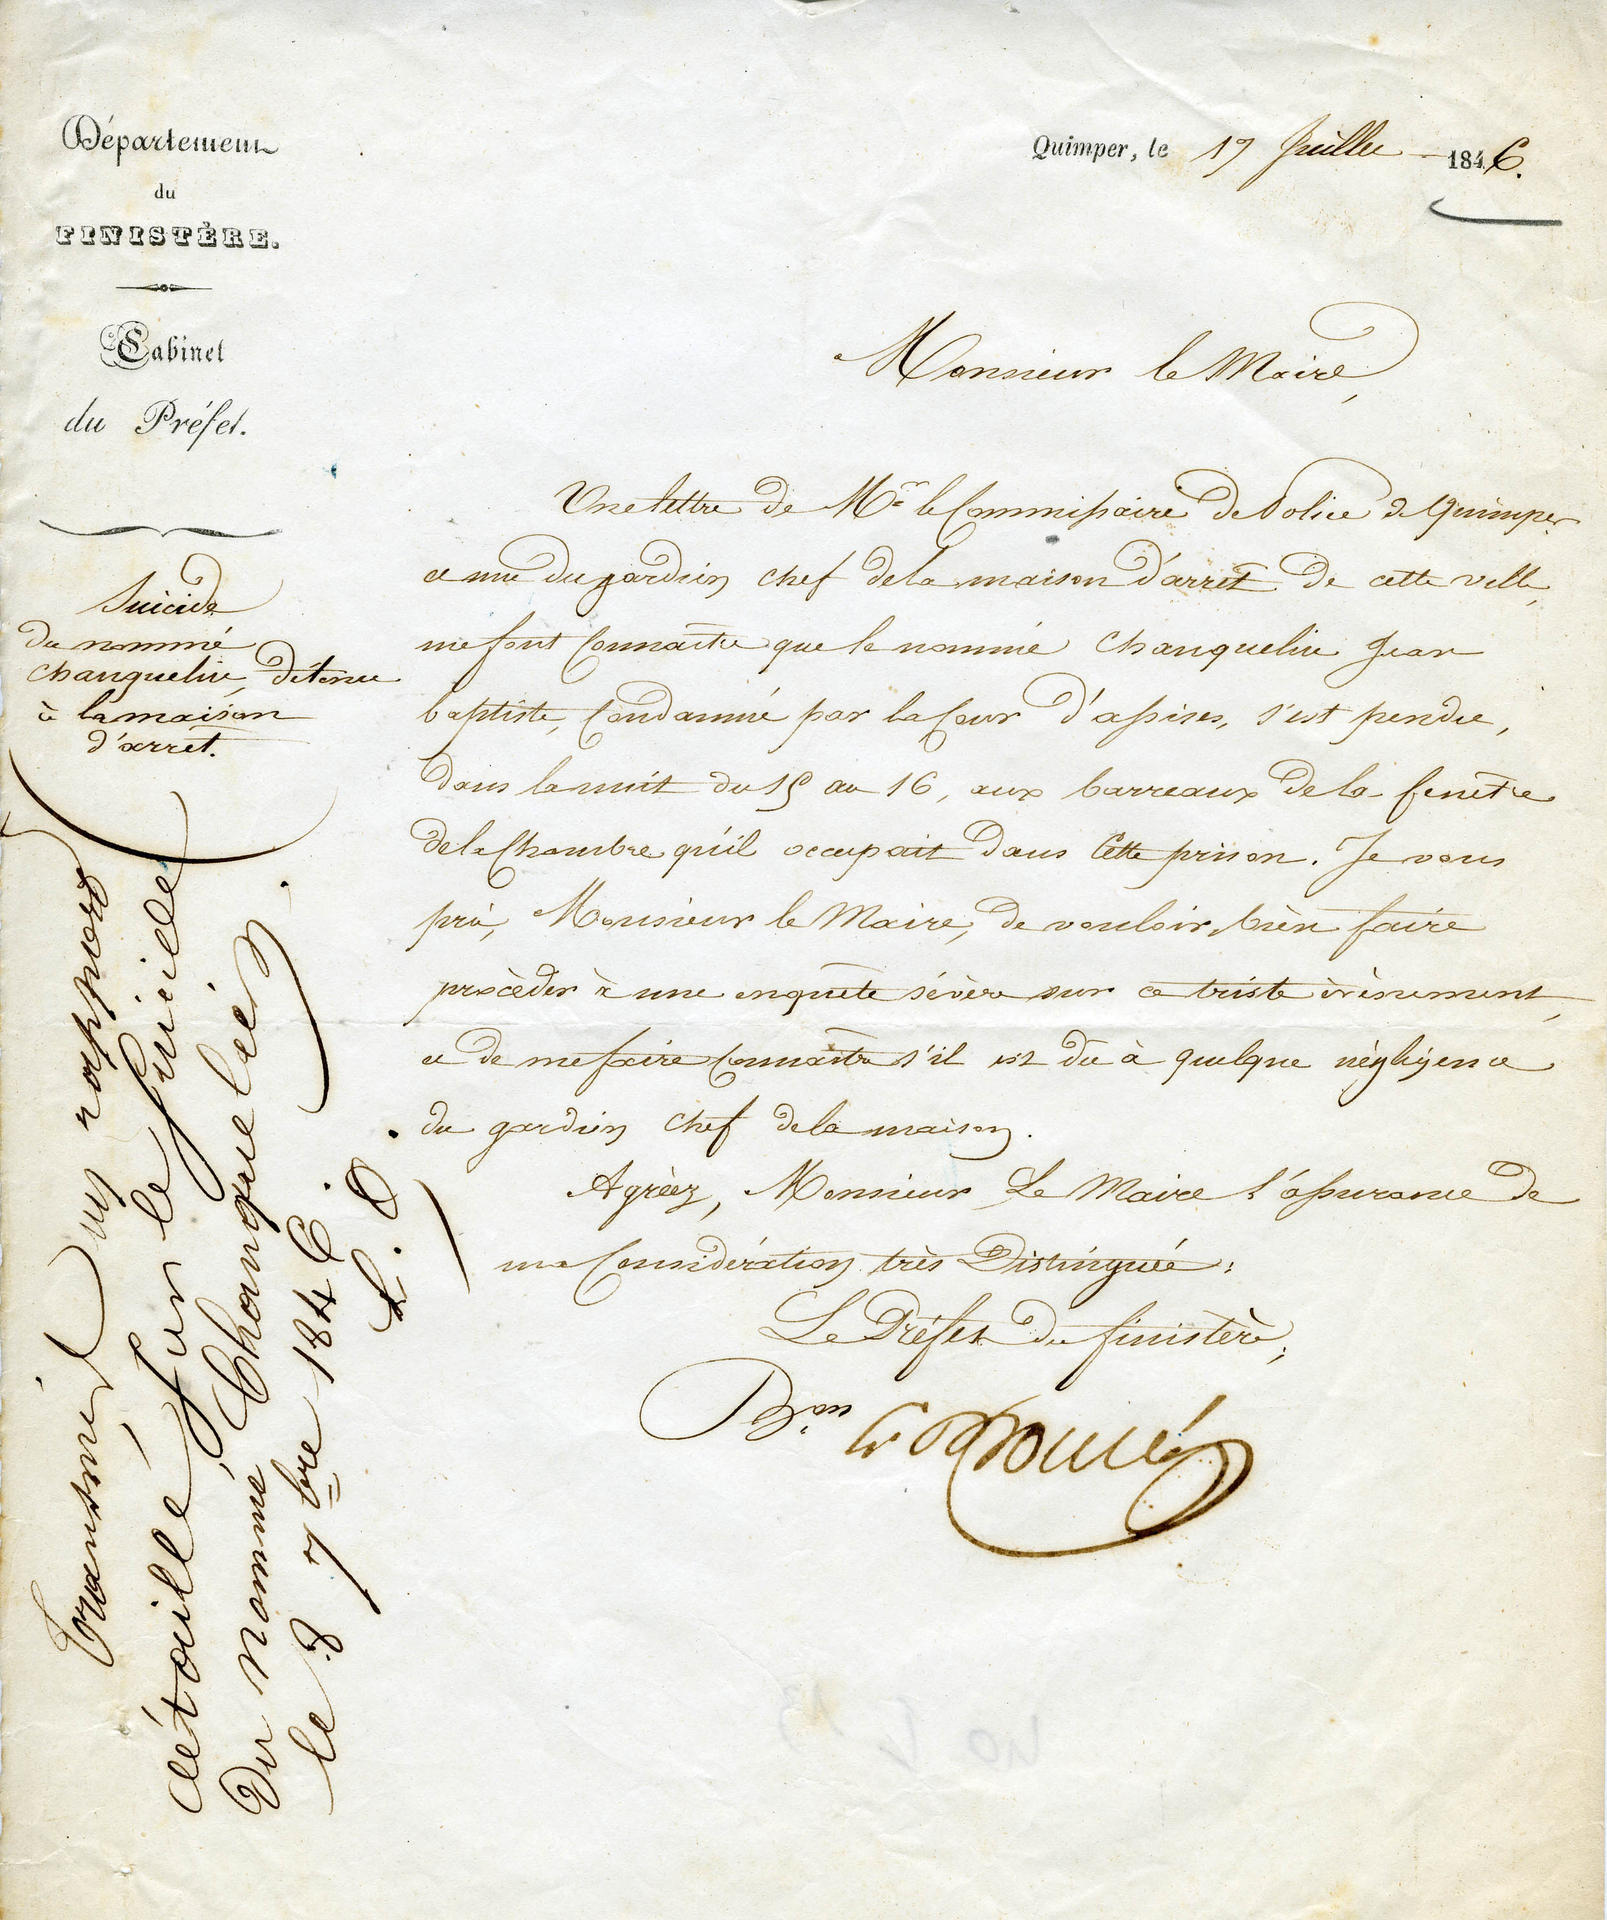 Département
du
FINISTÈRE.
Cabinet
du Préfet.
Quimper, le 17 Juillet 1846.
Suicide
du nommé
Chanquelin, détenu
à la maison
d'arrêt.
Monsieur le Maire,
Une lettre de Mr le Commissaire de Police de Quimper
et une du gardien chef de la maison d'arrêt de cette ville,
me font connaître que le nommé Chanquelin Jean
baptiste, condamné par la Cour d'assises, s'est pendu,
dans la nuit du 15 au 16, aux barreaux de la fenêtre
de la Chambre qu'il occupait dans cette prison. Je vous
prie, Monsieur le Maire, de vouloir bien faire
procèder à une enquête sévère sur ce triste évènement,
et de me faire connaître s'il est dû à quelque négligence
du gardien chef de la maison.
Agréez, Monsieur Le Maire l'assurance de
ma Considération très Distinguée;
Le Préfet du finistère,
Bon
Transmis un rapport
détaillé sur le suicide
Du nommé Chanquelin
le 8 7bre 1846.